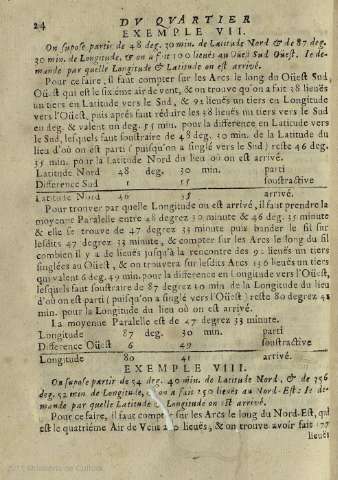 24 DV QVARTIER
EXEMPLE VII.
On supose partir de 48 deg. 30 min. de Latitude Nord & de 87 deg.
30 min. de Longitude, & on a fait 100 lieuës au Oüest Sud Oüest. Ie de-
mande par quelle Longitude & Latitude on est arrivé.
Pour ce faire, il faut compter sur les Arcs le long du Oüest Sud
Oüest qui est le sixiéme air de vent, & on trouve qu'on a fait 38 lieües
un tiers en Latitude vers le Sud, & 92 lieües un tiers en Longitude
vers l'Oüest, puis aprés faut réduire les 38 lieües un tiers vers le Sud
en deg. & valent un deg. 55 min. pour la difference en Latitude vers
le Sud, lesquels faut soustraire de 48 deg. 30 min. de la Latitude du
lieu d'où on êt parti (puisqu'on a singlé vers le Sud) reste 46 deg.
35 min. pour la Latitude Nord du lieu où on est arrivé.
Latitude Nord 48 deg. 30 min. parti
Difference Sud 1 55 soustractive
Latitude Nord 46 35 arrivé.
Pour trouver par quelle Longitude on est arrivé, il faut prendre la
moyenne Paralelle entre 48 degrez 30 minute & 46 deg. 35 minute
& elle se trouve de 47 degrez 33 minute puis bander le fil sur
lesdits 47 degrez 33 minute, & compter sur les Arcs le long du fil
combien il y a de lieuës jusqu'à la rencontre des 92 lieuës un tiers
singlées au Oüest, & on trouvera sur lesdits Arcs 136 lieuës un tiers
qui valent 6 deg. 49 min. pour la difference en Longitude vers l'Oüest,
lesquels faut soustraire de 87 degrez 30 min de la Longitude du lieu
d'où on est parti (puisqu'on a singlé vers l'Oüest) reste 80 degrez 41
min. pour la Longitude du lieu où on est arrivé.
La moyenne Paralelle est de 47 degrez 33 minute.
Longitude 87 deg. 30 min. parti
Difference Oüest 6 49 soustractive
Longitude 80 41 arrivé.
EXEMPLE VIII.
On supose partir de 54 deg. 40 min. de Latitude Nord, & de 356
deg. 52 min de Longitude, & on a fait 250 lieuës au Nord-Est: Ie de-
mande par quelle Latitude & Longitude on est arrivé.
Pour ce faire, il faut compter sur les Arcs le long du Nord-Est, qui
est le quatriéme Air de Vent 250 lieuës, & on trouve avoir fait 177
lieuës